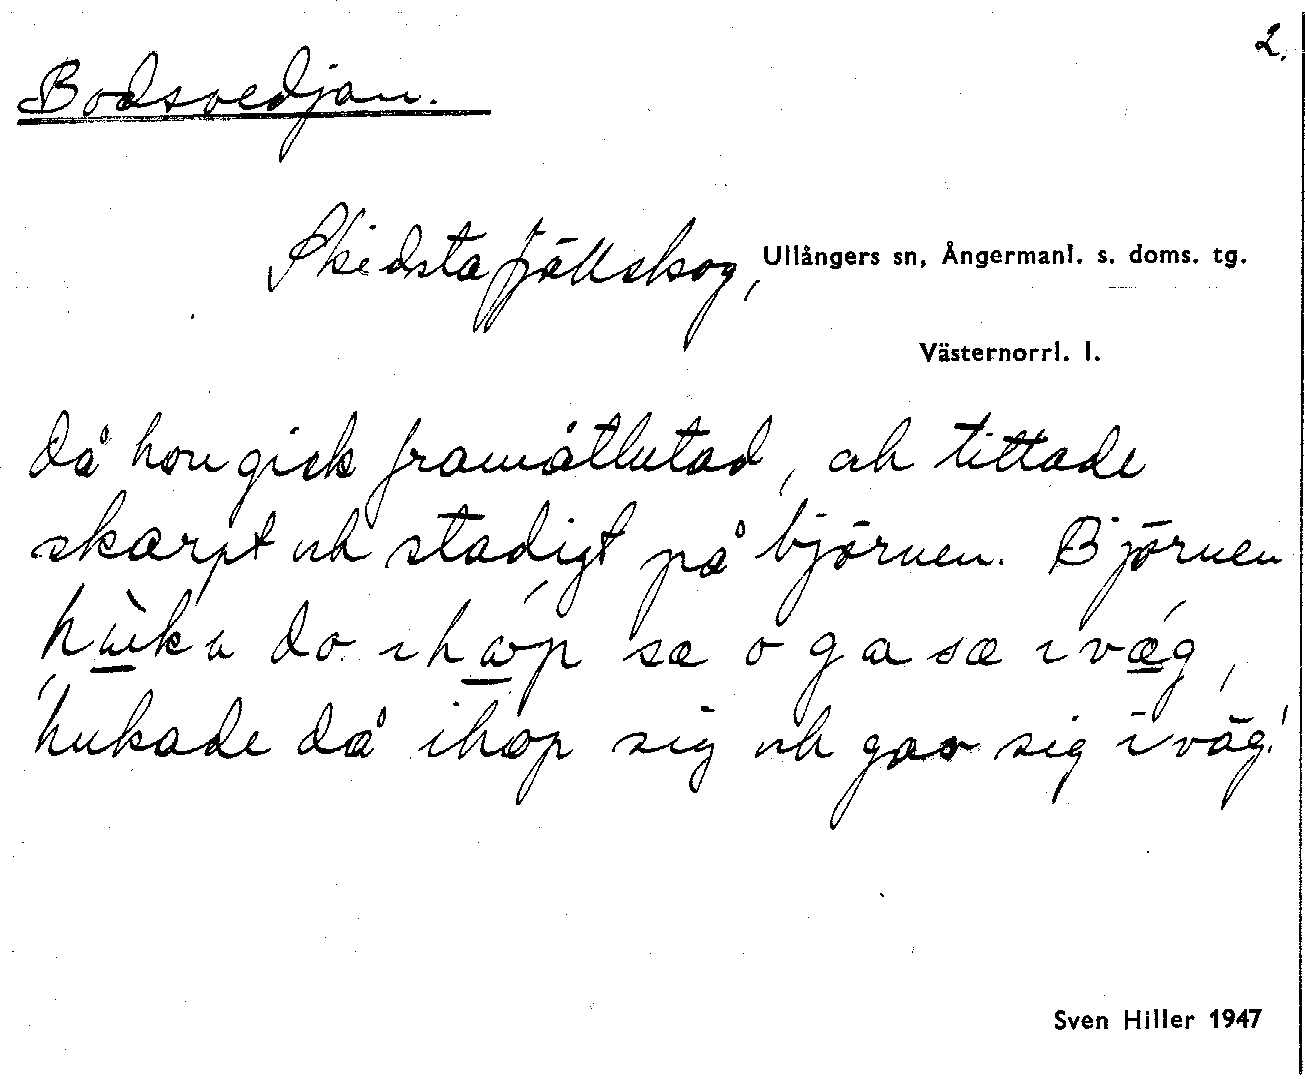 2.
Bodsvedjan.
Skedsta fjällskog, Ullångers sn, Ångermanl. s. doms. tg.
Västernorrl. l.
då hon gick framåtlutad, och tittade
skarpt och stadigt på björnen. Björnen
do sæ o ga sæ
hukade då ihop sig och gav sig iväg!
Sven Hiller 1947